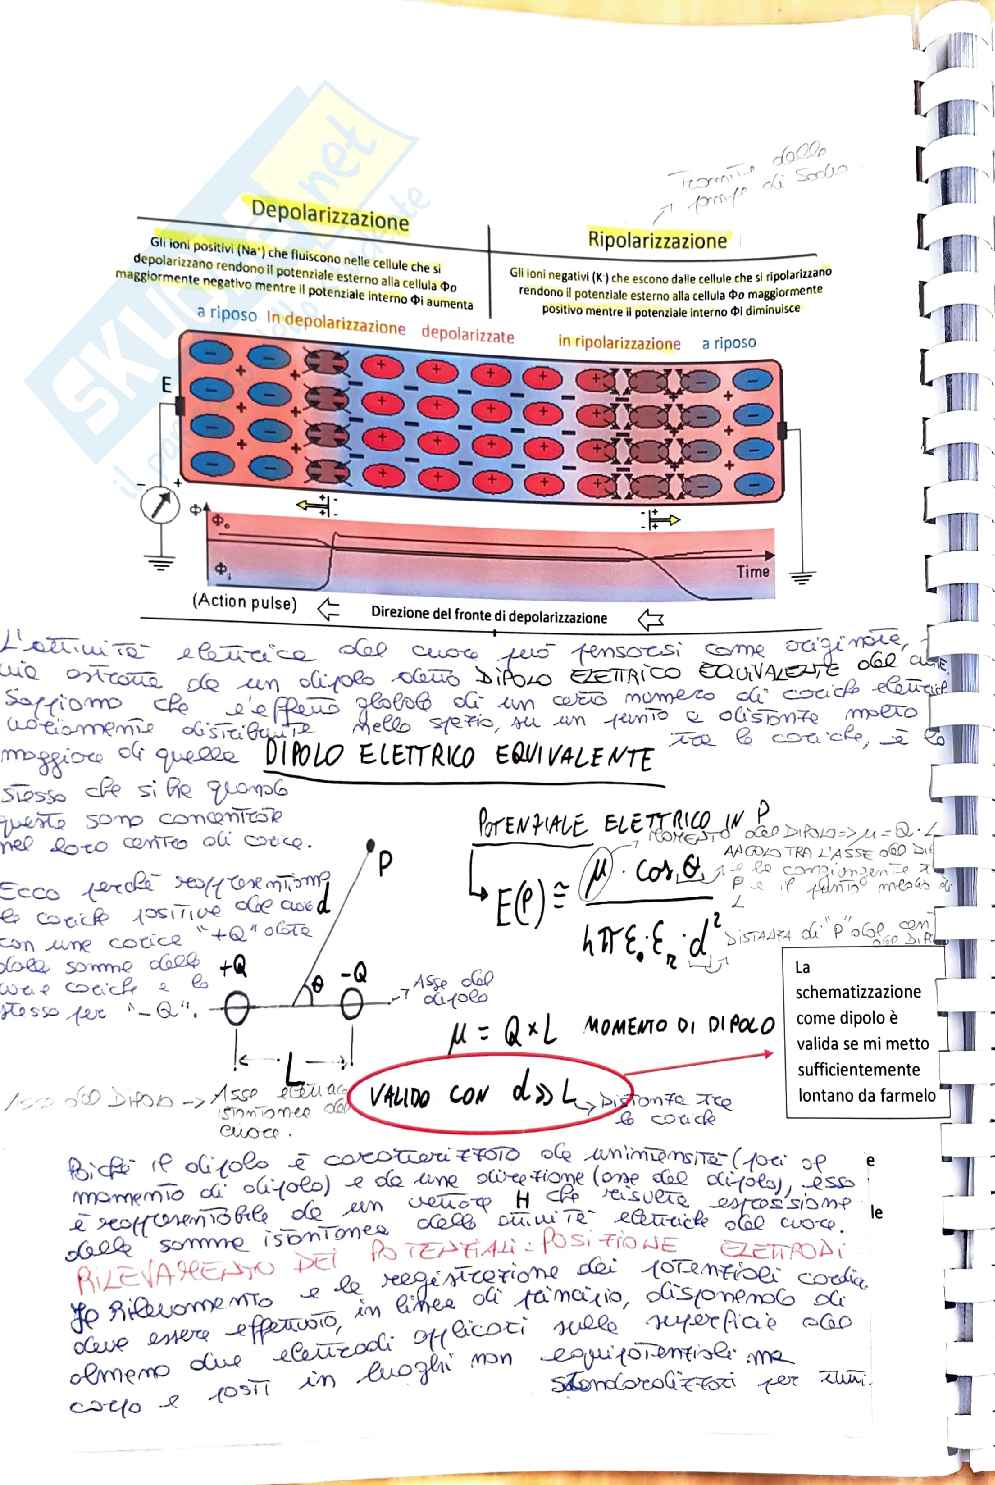 SKUOLA.net
Tramite delle
pompe di Sodio
Depolarizzazione
Ripolarizzazione
Gli ioni positivi (Na⁺) che fluiscono nelle cellule che si
depolarizzano rendono il potenziale esterno alla cellula Φo
maggiormente negativo mentre il potenziale interno Φi aumenta
Gli ioni negativi (K⁻) che escono dalle cellule che si ripolarizzano
rendono il potenziale esterno alla cellula Φo maggiormente
positivo mentre il potenziale interno Φi diminuisce
a riposo In depolarizzazione depolarizzate in ripolarizzazione a riposo
E
Φ
Φo
Φi
Time
(Action pulse)
Direzione del fronte di depolarizzazione
L'attività elettrica del cuore può pensarsi come originata,
via astratta da un dipolo detto DIPOLO ELETTRICO EQUIVALENTE del
Sappiamo che l'effetto globale di un certo numero di cariche elettric
variamente distribuite nello spazio, su un punto a distanza molto
maggiore di quella DIPOLO ELETTRICO EQUIVALENTE tra le cariche, è lo
stesso che si ha quando
queste sono concentrate
nel loro centro di carica.
POTENZIALE ELETTRICO IN P
MOMENTO del DIPOLO => μ = Q · L
E(P) ≅ μ · cos θ / 4π ε₀ · εr · d²
ANGOLO TRA L'ASSE del DI
e la congiungente
P e il punto medio di
L
DISTANZA di "P" dal cen
del DI
Ecco perché rappresentiamo
le cariche positive del cuore
con una carica "+Q" data
dalla somma delle
varie cariche e lo
stesso per "-Q".
P
d
+Q
-Q
θ
Asse del
dipolo
L
μ = Q × L MOMENTO DI DIPOLO
La
schematizzazione
come dipolo è
valida se mi metto
sufficientemente
lontano da farmelo
VALIDO CON d >> L
Distanza tra
le cariche
Asse del DIPOLO -> Asse elettrico
istantaneo del
cuore.
Poiché il dipolo è caratterizzato da un'intensità (pari al
momento di dipolo) e da una direzione (asse del dipolo), esso
è rappresentabile da un vettore H che risulta espressione
della somma istantanea delle attività elettriche del cuore.
e
le
RILEVAMENTO DEI POTENZIALI: POSIZIONE ELETTRODI
Il rilevamento e la registrazione dei potenziali cardia
deve essere effettuato, in linea di principio, disponendo di
almeno due elettrodi applicati sulla superficie del
corpo e posti in luoghi non equipotenziali ma
standardizzati per tutti.